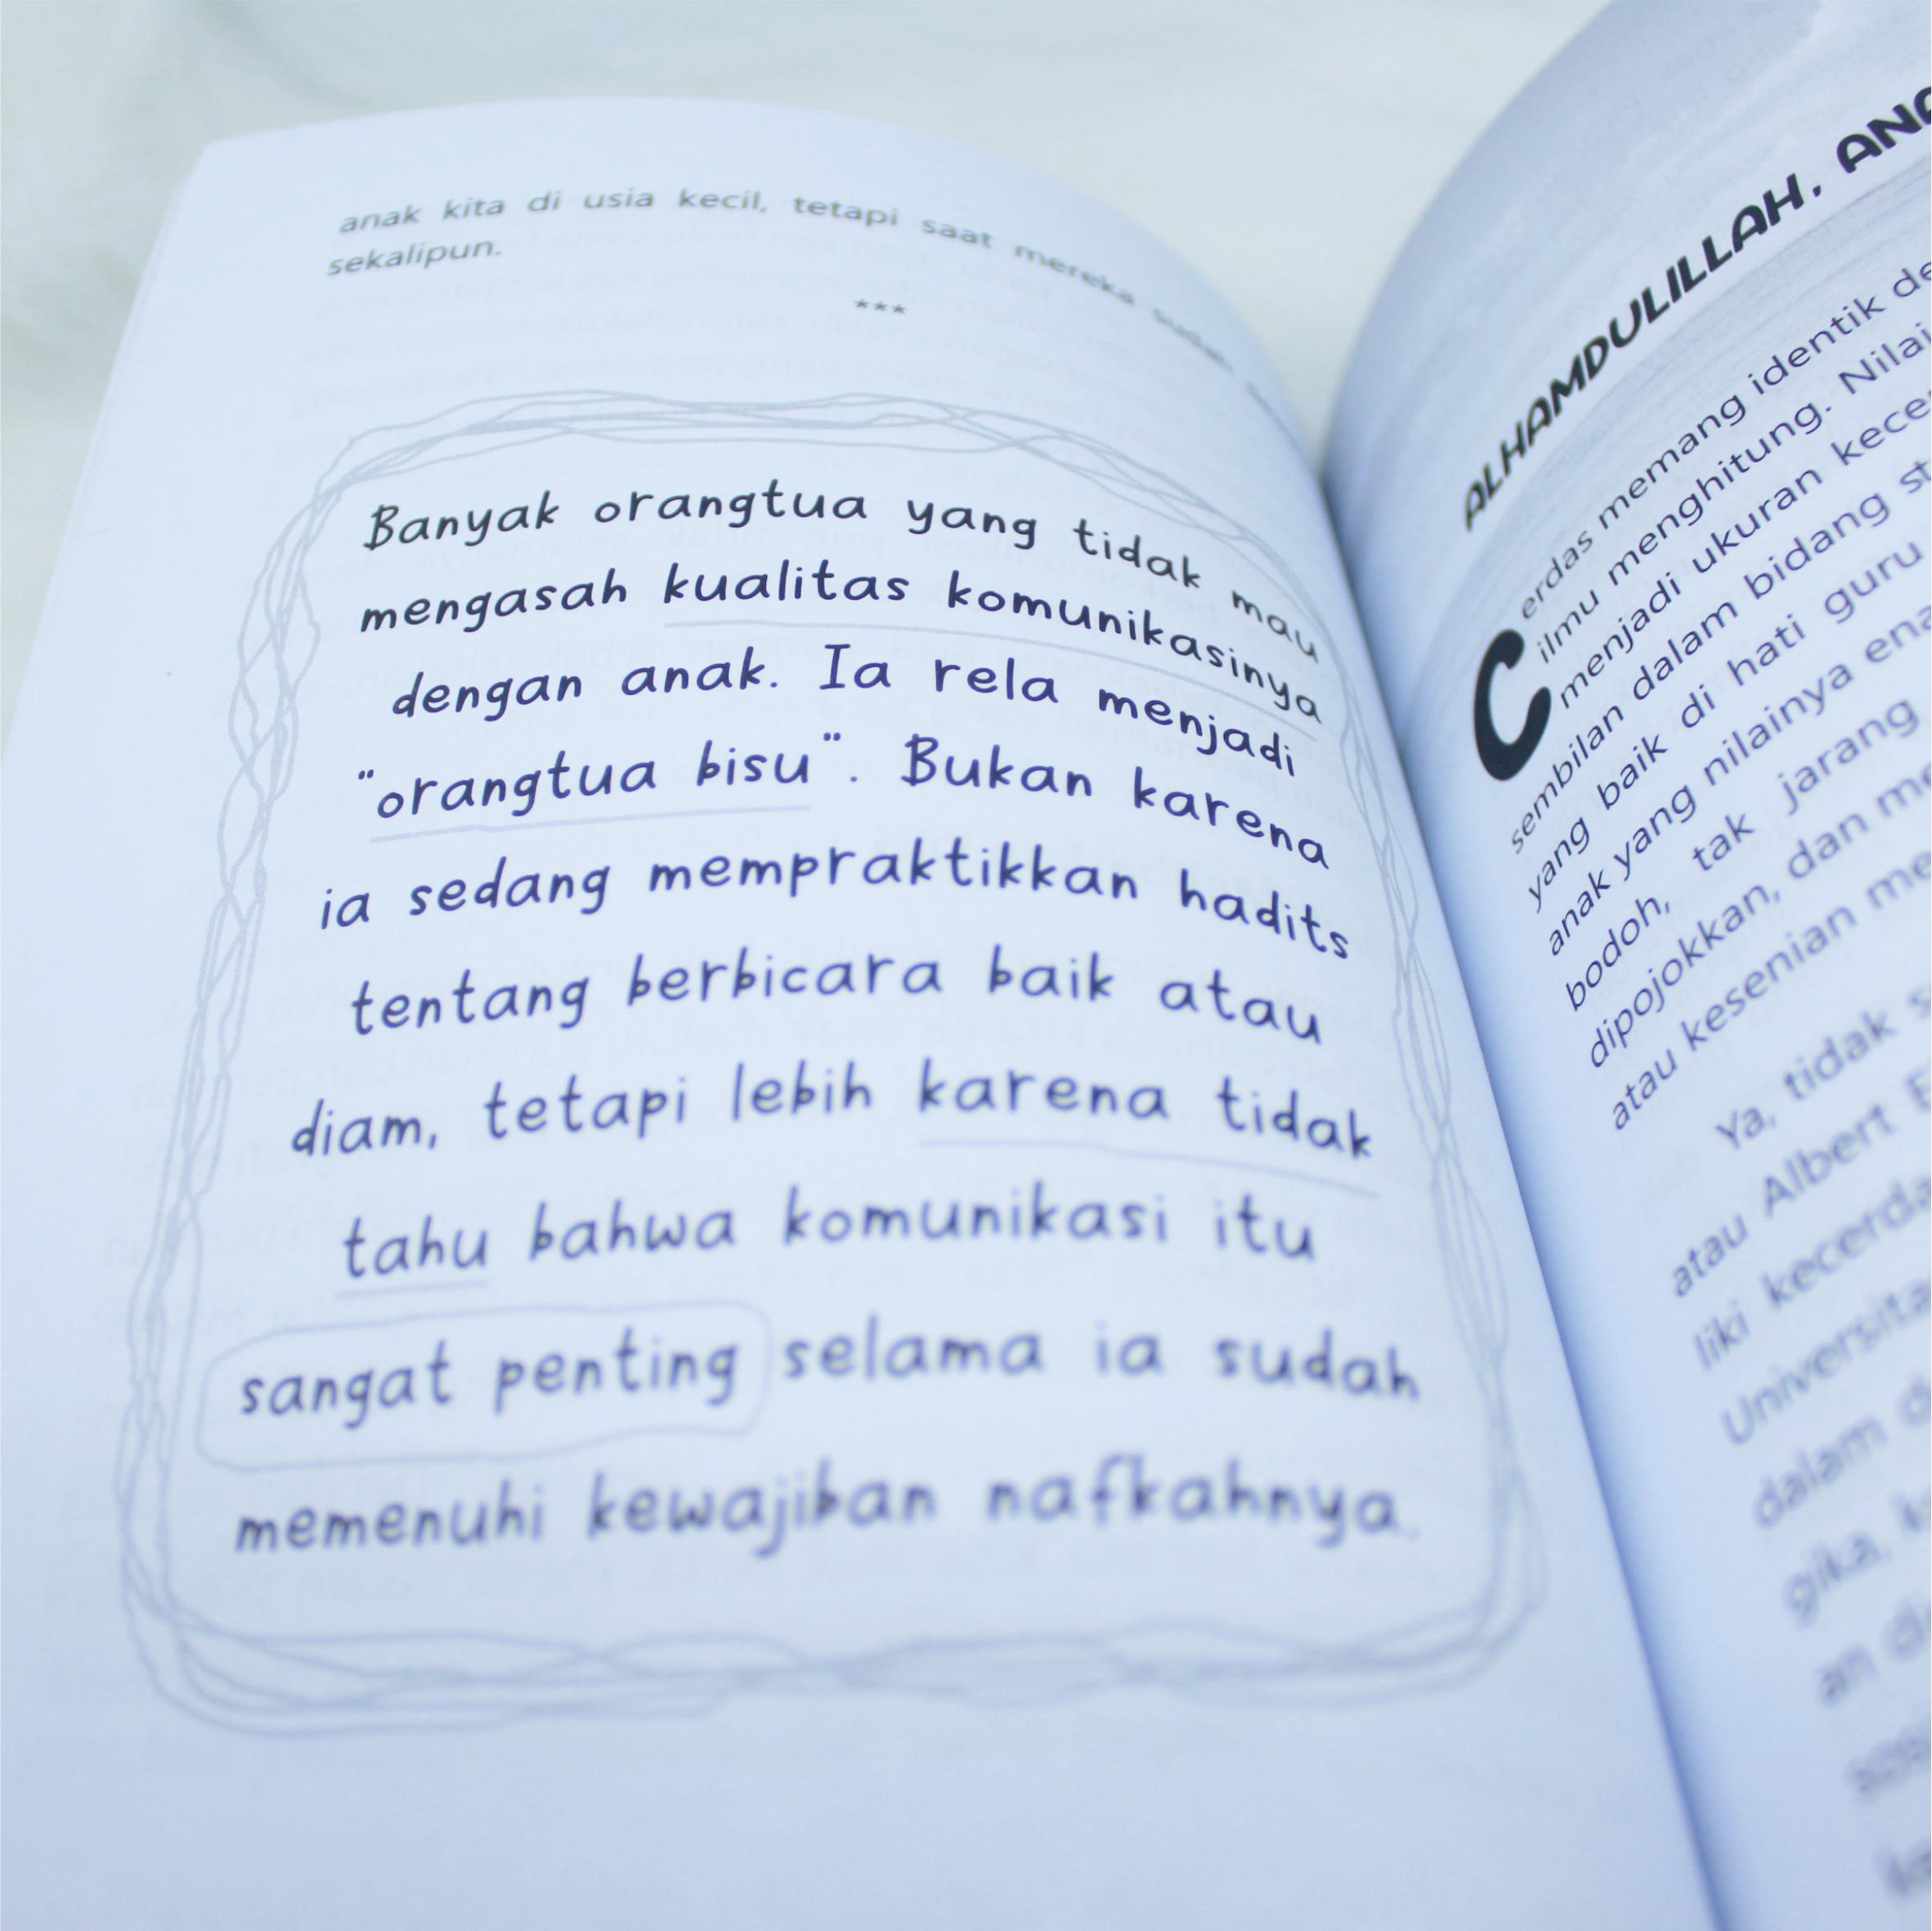 anak kita di usia kecil, tetapi saat mereka sudah
sekalipun.
***
Banyak orangtua yang tidak mau
mengasah kualitas komunikasinya
dengan anak. Ia rela menjadi
"orangtua bisu". Bukan karena
ia sedang mempraktikkan hadits
tentang berbicara baik atau
diam, tetapi lebih karena tidak
tahu bahwa komunikasi itu
sangat penting selama ia sudah
memenuhi kewajiban nafkahnya.
ALHAMDULILLAH,
Cerdas memang identik
ilmu menghitung.
menjadi ukuran
sembilan dalam bidang
yang baik di hati guru
anak yang nilainya
bodoh, tak jarang
dipojokkan, dan
atau kesenian
Ya, tidak
atau Albert
liki
dalam
gika,
an